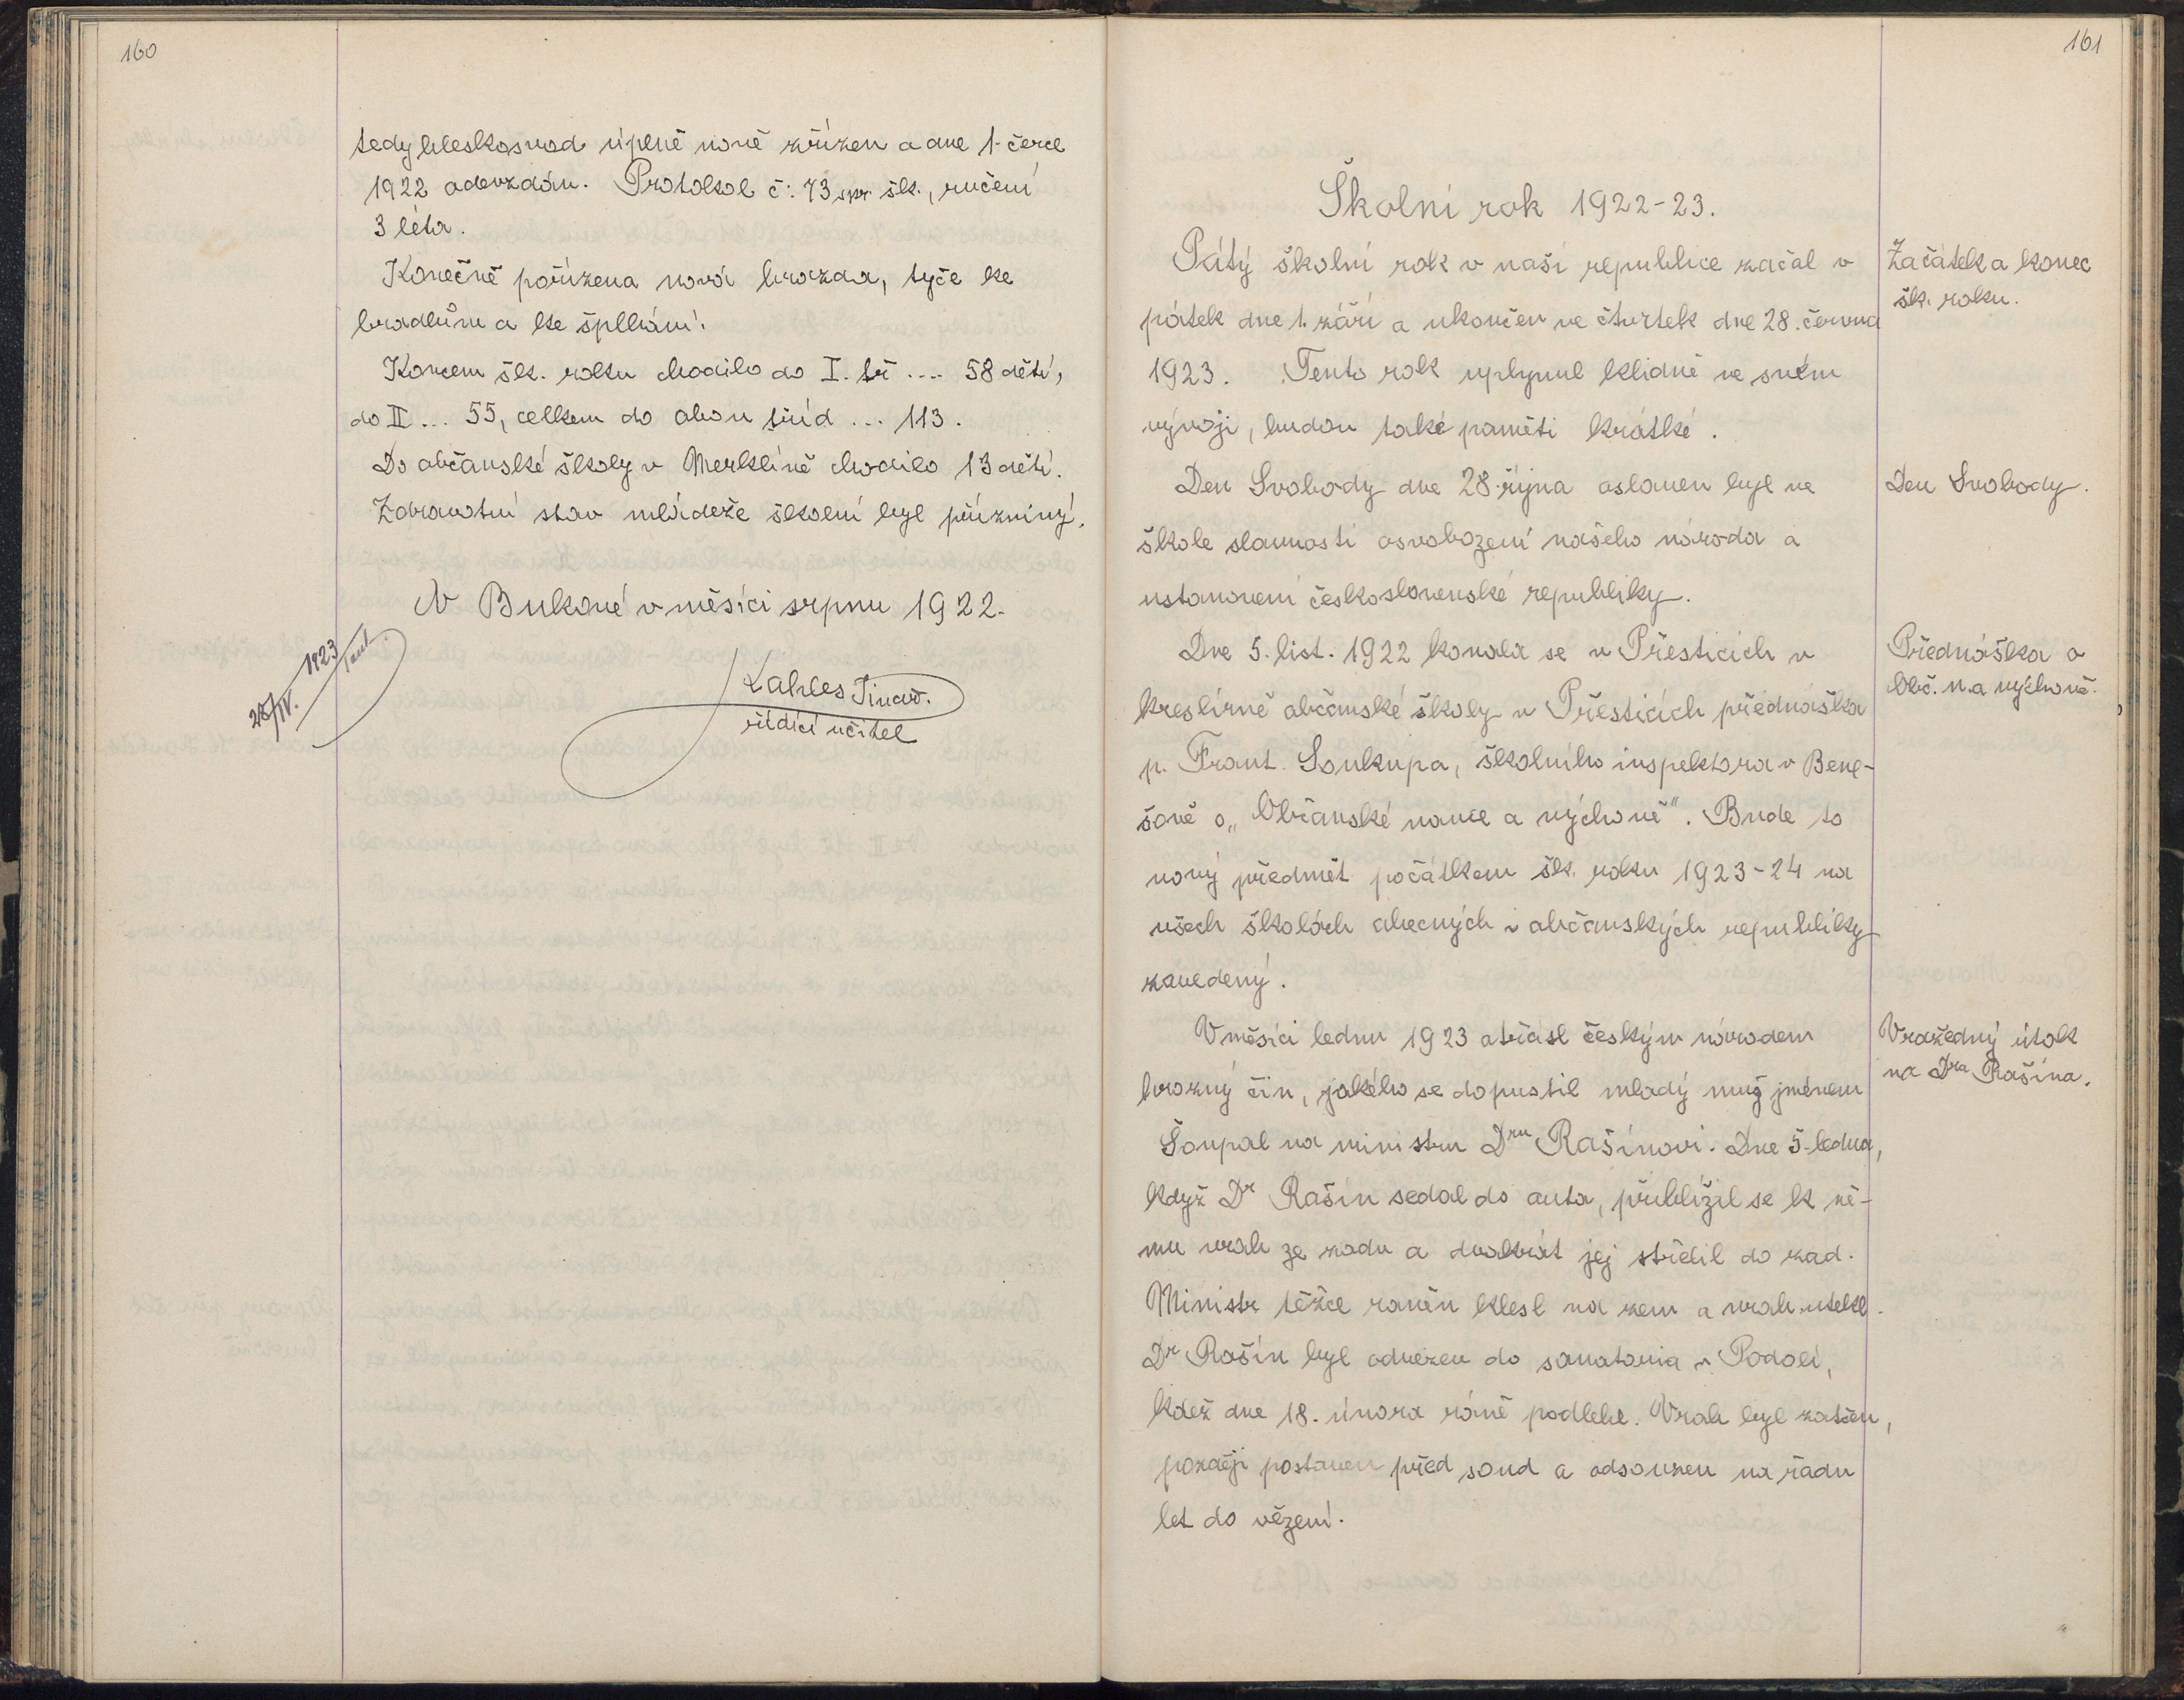 160
tedy bleskosvod úplně nově zřízen a dne 1. čerce
1922 odevzdán. Protokol č: 73 škr. šk., ručení
3 léta.
Konečně pořízena nová hrazda, tyče ke
bradlům a ke šplhání.
Koncem šk. roku chodilo do I. tř .... 58 dětí,
do II ... 55, celkem do obou tříd ... 113.
Do občanské školy v Merklíně chodilo 13 dětí.
Zdravotní stav mládeže školní byl příznivý.
V Bukové v měsíci srpnu 1922.
28/IV. 1923
řídící učitel
161
Školní rok 1922-23.
Pátý školní rok v naší republice začal v
pátek dne 1. září a ukončen ve čtvrtek dne 28. června
1923. Tento rok uplynul klidně ve svém
vývoji, budou také paměti krátké.
Začátek a konec
šk. roku.
Den Svobody dne 28. října oslaven byl ve
škole slavností osvobození našeho národa a
ustanovení československé republiky.
Den Svobody.
Dne 5. list. 1922 konala se v Přešticích v
kreslírně občanské školy v Přešticích přednáška
p. Frant. Soukupa, školního inspektora v Bene-
šově o „Občanské nauce a výchově". Bude to
nový předmět počátkem šk. roku 1923-24 na
všech školách obecných i občanských republiky
zavedený.
Přednáška o
Obč. n. a výchově.
V měsíci lednu 1923 otřásl českým národem
hrozný čin, jakého se dopustil mladý muž jménem
Šoupal na ministru Dru Rašínovi. Dne 5. ledna,
když Dr Rašín sedal do auta, přiblížil se k ně-
mu vrah ze zadu a dvakrát jej střelil do zad.
Ministr těžce raněn klesl na zem a vrah utekl.
Dr Rašín byl odvezen do sanatoria v Podolí,
kdež dne 18. února ráně podlehl. Vrah byl zatčen,
později postaven před soud a odsouzen na řadu
let do vězení.
Vražedný útok
na Dra Rašína.